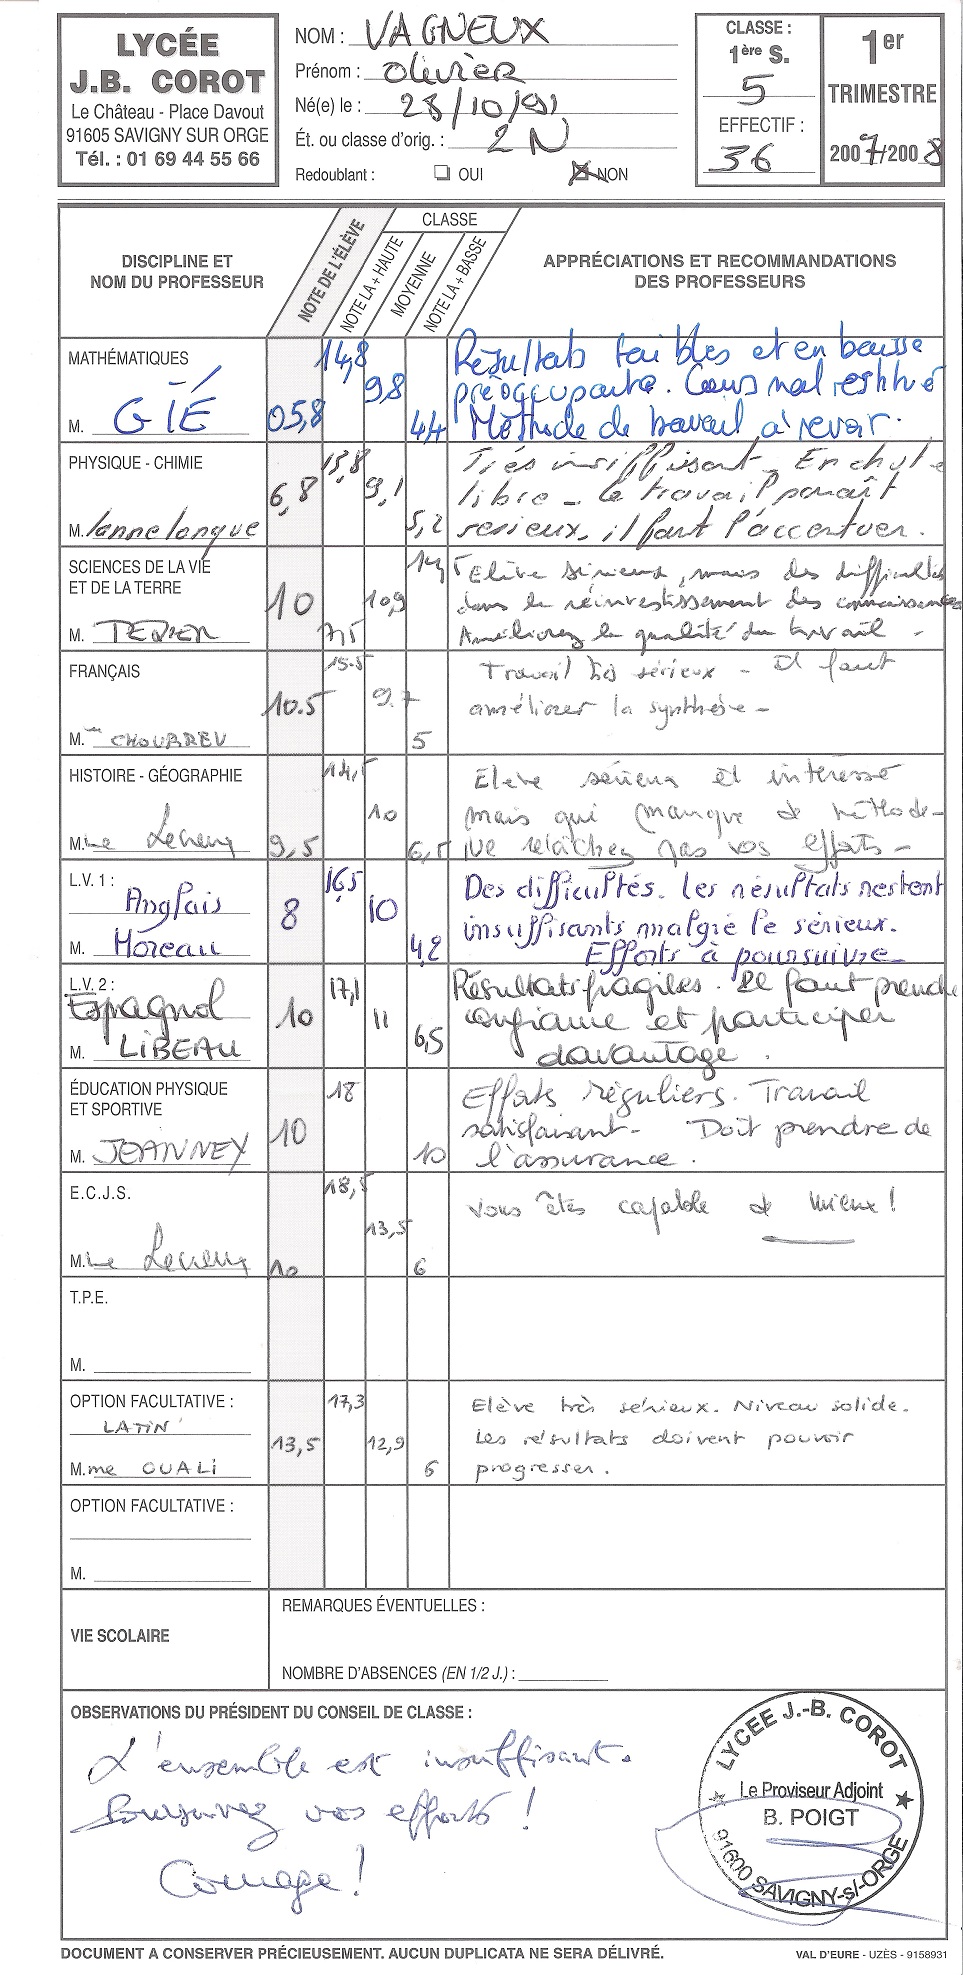 LYCÉE
J.B. COROT
Le Château - Place Davout
91605 SAVIGNY SUR ORGE
Tél. : 01 69 44 55 66
NOM : VAGNEUX
Prénom : Olivier
Né(e) le : 28/10/91
Ét. ou classe d'orig. : 2 N
Redoublant : OUI NON
CLASSE :
1ère S.
5
EFFECTIF :
36
1er
TRIMESTRE
2007/2008
DISCIPLINE ET
NOM DU PROFESSEUR
NOTE DE L'ÉLÈVE
CLASSE
NOTE LA + HAUTE
MOYENNE
NOTE LA + BASSE
APPRÉCIATIONS ET RECOMMANDATIONS
DES PROFESSEURS
MATHÉMATIQUES
M. GIÉ
05,8
14,8
9,8
4,4
Résultats faibles et en baisse
préoccupante. Cours mal restitué
Méthode de travail à revoir.
PHYSIQUE - CHIMIE
M. lannelongue
6,8
15,8
9,1
5,2
Très insuffisant - En chute
libre - le travail paraît
serieux, il faut l'accentuer.
SCIENCES DE LA VIE
ET DE LA TERRE
M.
10
7,5
10,9
14,5
Elève sérieux, mais des difficultés
dans le réinvestissement des connaissances
Améliorez la qualité du travail -
FRANÇAIS
M.me CHOURREU
10.5
15.5
9.7
5
Travail très sérieux - Il faut
améliorer la synthèse -
HISTOIRE - GÉOGRAPHIE
M.
9,5
14,5
10
6,5
Elève sérieux et intéressé
mais qui manque de méthode -
Ne relâchez pas vos efforts -
L.V. 1 :
Anglais
M. Moreau
8
16,5
10
4,2
Des difficultés. Les résultats restent
insuffisants malgré le sérieux.
Efforts à poursuivre -
L.V. 2 :
Espagnol
M. LIBEAU
10
17,1
11
6,5
Résultats fragiles. Il faut prendre
confiance et participer
davantage.
ÉDUCATION PHYSIQUE
ET SPORTIVE
M. JOANNEY
10
18
10
Efforts réguliers. Travail
satisfaisant - Doit prendre de
l'assurance.
E.C.J.S.
M.
10
18,5
13,5
6
Vous êtes capable de mieux !
T.P.E.
M.
OPTION FACULTATIVE :
LATIN
M.me OUALI
13,5
17,3
12,9
6
Elève très sérieux. Niveau solide.
Les résultats doivent pouvoir
progresser.
OPTION FACULTATIVE :
M.
VIE SCOLAIRE
REMARQUES ÉVENTUELLES :
NOMBRE D'ABSENCES (EN 1/2 J.) :
OBSERVATIONS DU PRÉSIDENT DU CONSEIL DE CLASSE :
L'ensemble est insuffisant.
Poursuivez vos efforts !
Courage !
LYCEE J.-B. COROT
Le Proviseur Adjoint
B. POIGT
91600 SAVIGNY-s/-ORGE
DOCUMENT A CONSERVER PRÉCIEUSEMENT. AUCUN DUPLICATA NE SERA DÉLIVRÉ.
VAL D'EURE - UZÈS - 9158931